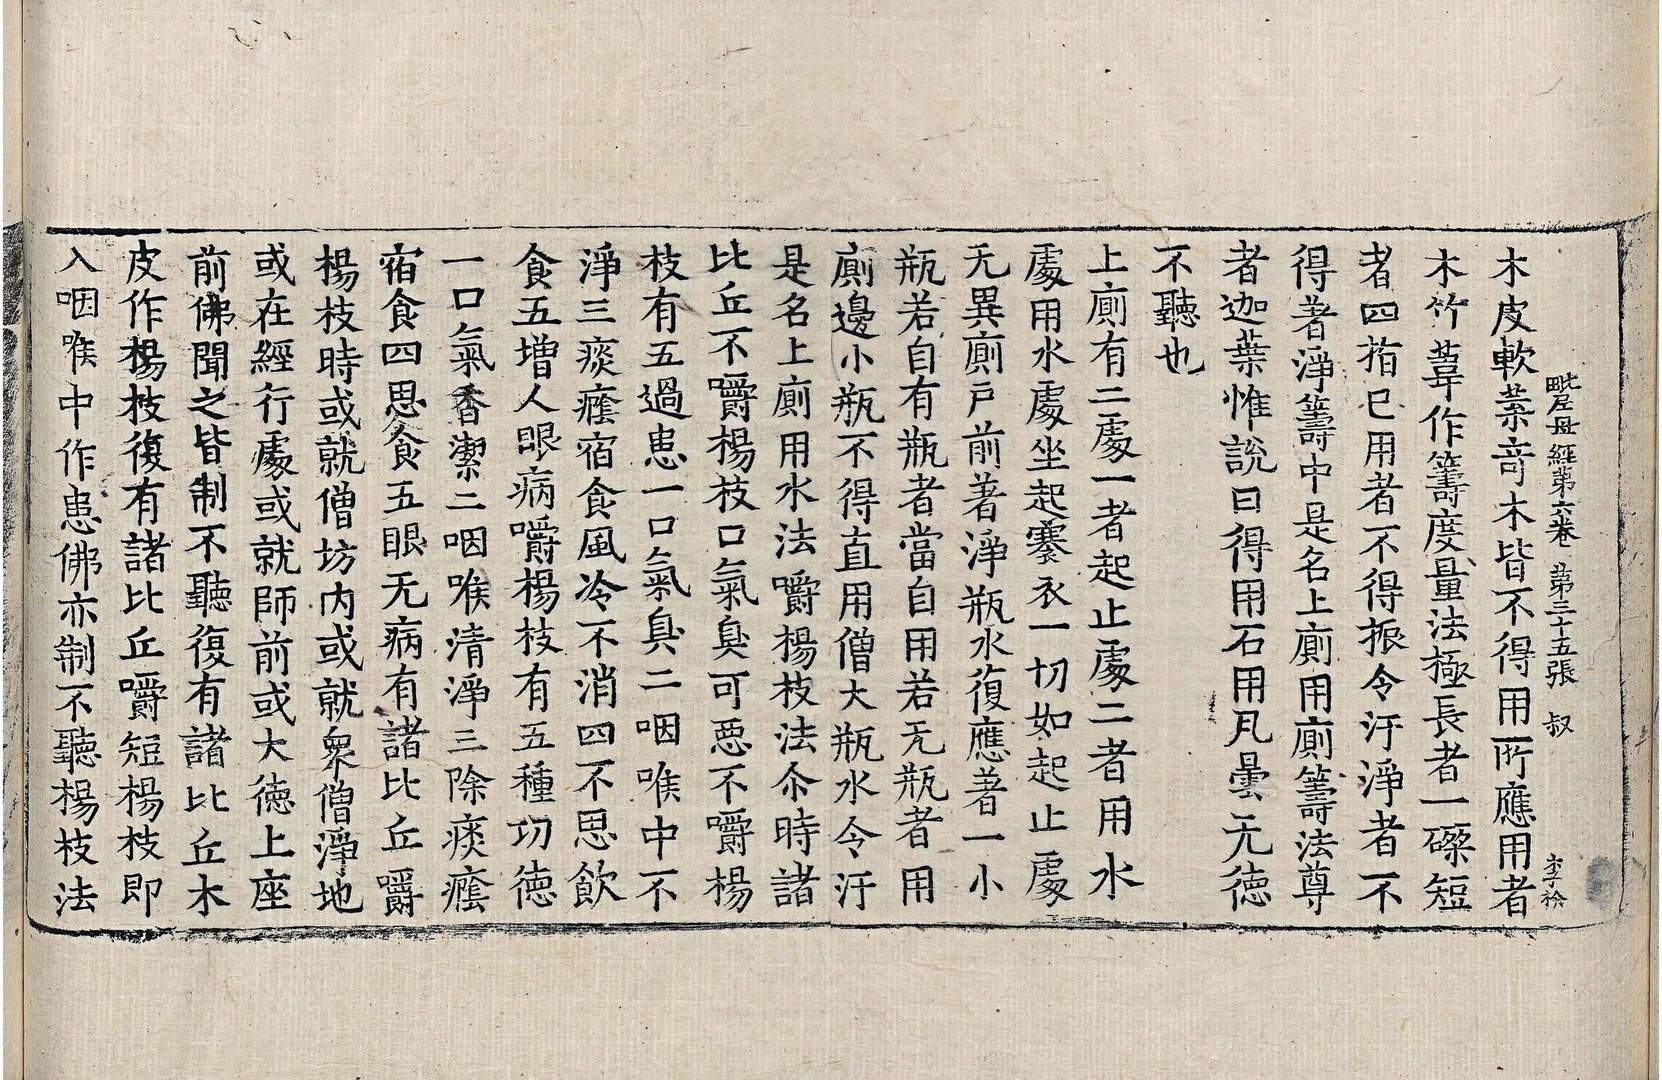 毗尼母經第六卷 第三十五張 叔 李檜
木皮軟葉竒木皆不得用所應用者
木竹葦作籌度量法極長者一磔短
者四指已用者不得振令汙淨者不
得著淨籌中是名上廁用廁籌法尊
者迦葉惟說曰得用石用凡曇无徳
不聽也
上廁有二處一者起止處二者用水
處用水處坐起褰衣一切如起止處
无異廁戸前著淨瓶水復應著一小
瓶若自有瓶者當自用若无瓶者用
廁邊小瓶不得直用僧大瓶水令汙
是名上廁用水法嚼楊枝法尒時諸
比丘不嚼楊枝口氣臭可惡不嚼楊
枝有五過患一口氣臭二咽喉中不
淨三痰癊宿食風冷不消四不思飲
食五増人眼病嚼楊枝有五種功徳
一口氣香潔二咽喉清淨三除痰癊
宿食四思食五眼无病有諸比丘嚼
楊枝時或就僧坊内或就衆僧淨地
或在經行處或就師前或大徳上座
前佛聞之皆制不聽復有諸比丘木
皮作楊枝復有諸比丘嚼短楊枝即
入咽喉中作患佛亦制不聽楊枝法